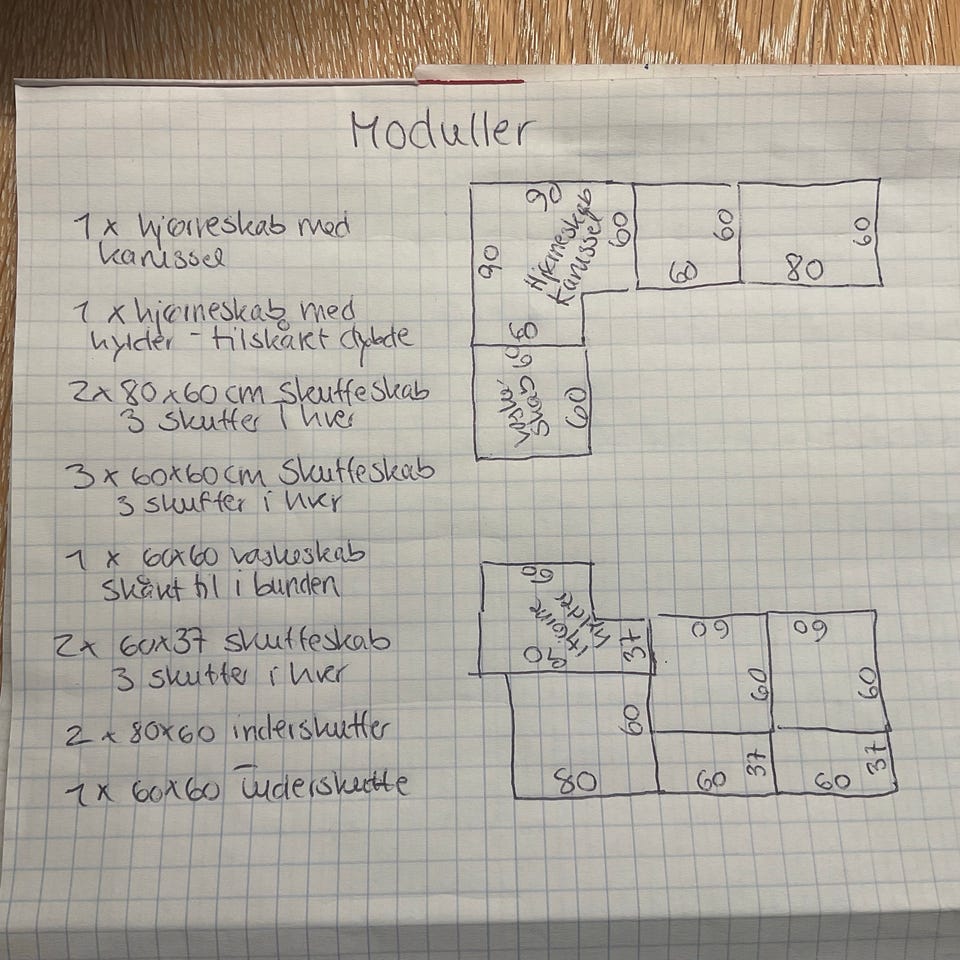 Moduller
1 x hjørneskab med
karussel
1 x hjørneskab med
hylder - tilskåret dybde
2 x 80x60 cm Skuffeskab
3 skuffer i hver
3 x 60x60 cm Skuffeskab
3 skuffer i hver
1 x 60x60 vaskeskab
skåret til i bunden
2 x 60x37 skuffeskab
3 skuffer i hver
2 x 80x60 inderskuffer
1 x 60x60 inderskuffe
90
90
Hjørneskab
Karussel
60
60
60
60
80
60
60
Vaske
Skab
60
60
90
Hjørne
hylder
37
60
60
60
60
80
60
60
37
60
37